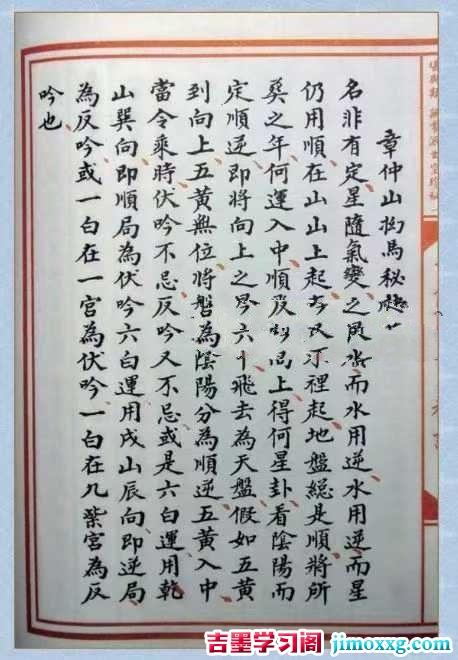 章仲山馬秘
名非有定星隨氣變之水而水用逆水用逆而星
仍用順在山山上起裡起地盤總是順將所
葵之年何運入中順及上得何星卦看陰陽而
定順逆即將向上之六飛去為天盤假如五黃
到向上五黃無位將盤為陰陽分為順逆五黃入中
當令乘時伏吟不忌反吟又不忌或是六白運用乾
山巽向即順局為伏吟六白運用戌山辰向即逆局
為反吟或一白在一宮為伏吟一白在九紫宮為反
吟也
吉墨学习阁 jimoxxg.com